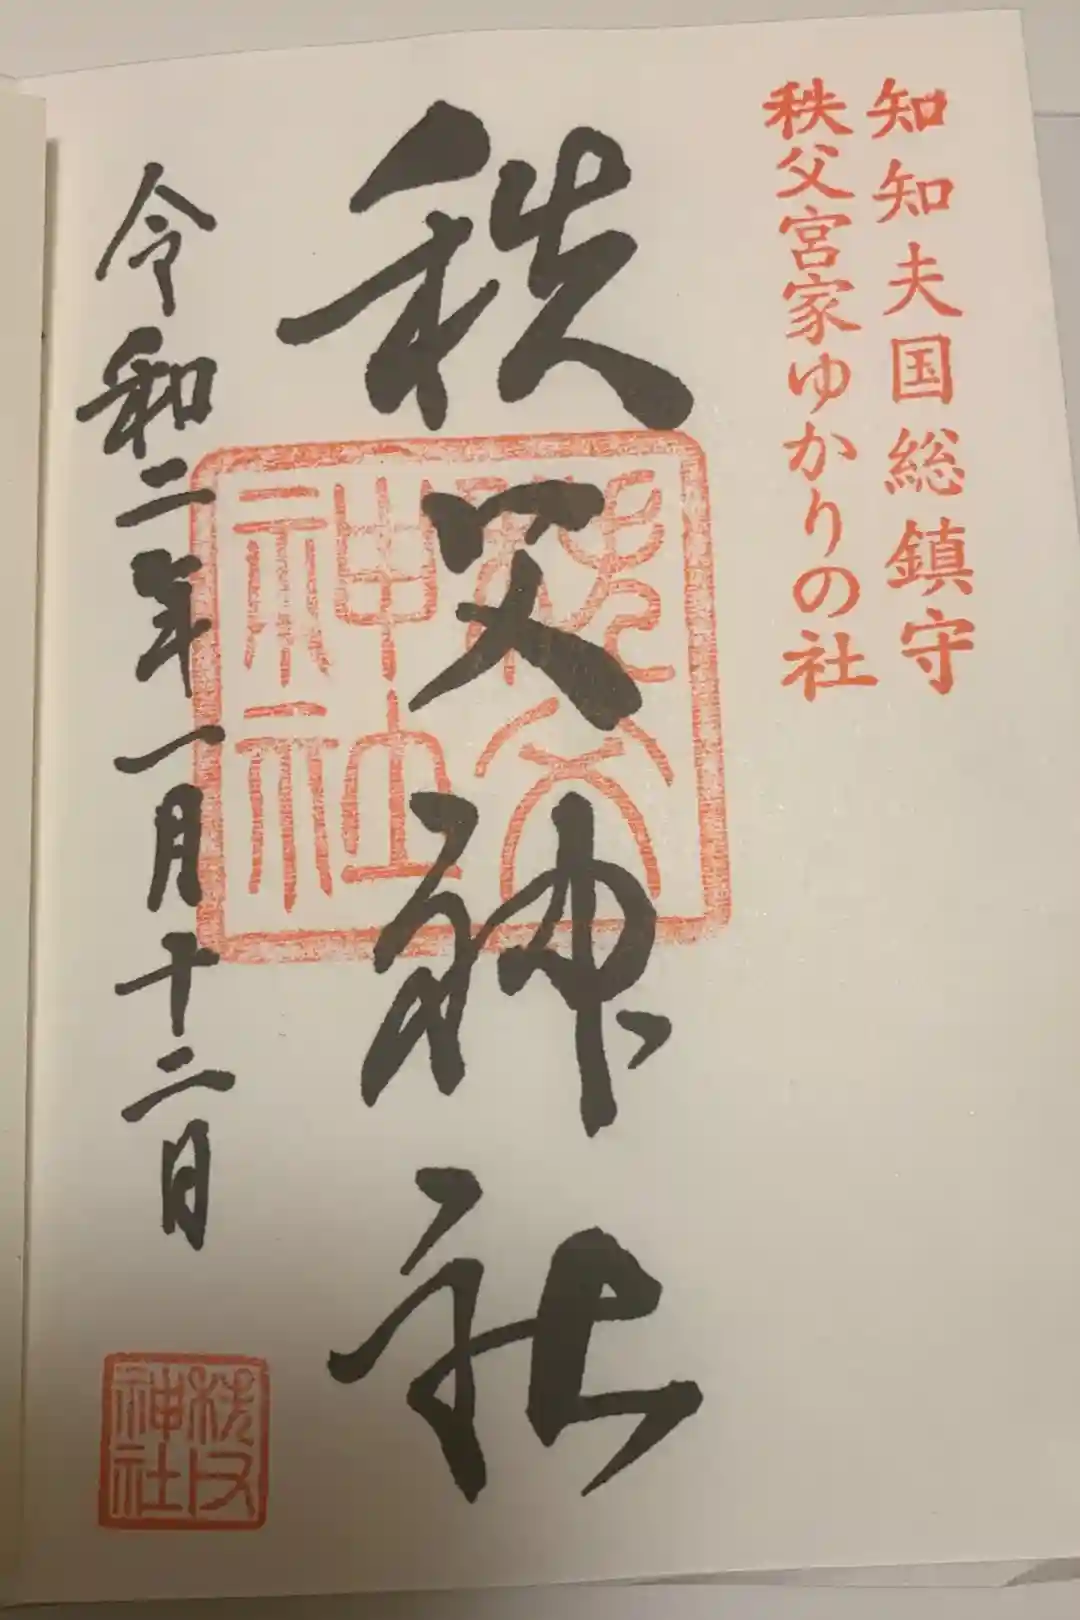 知知夫国総鎮守
秩父宮家ゆかりの社
秩父神社
秩父神社
令和二年一月十二日
秩父神社